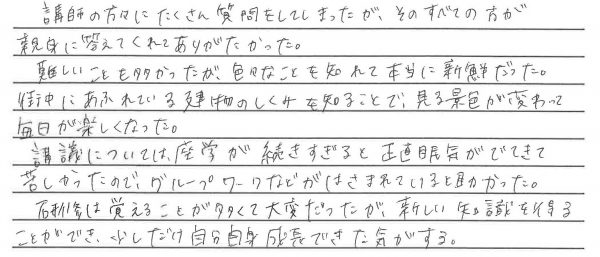 講師の方々にたくさん質問をしてしまったが、そのすべての方が
親身に答えてくれてありがたかった。
難しいことも多かったが、色々なことも知れて本当に新鮮だった。
街中にあふれている建物のしくみを知ることで、見る景色が変わって
毎日が楽しくなった。
講議については、座学が続きすぎると正直眠気がでてきて
苦しかったので、グループワークなどがはさまれていると助かった。
研修は覚えることが多くて大変だったが、新しい知識を得る
ことができ、少しだけ自分自身成長できた気がする。